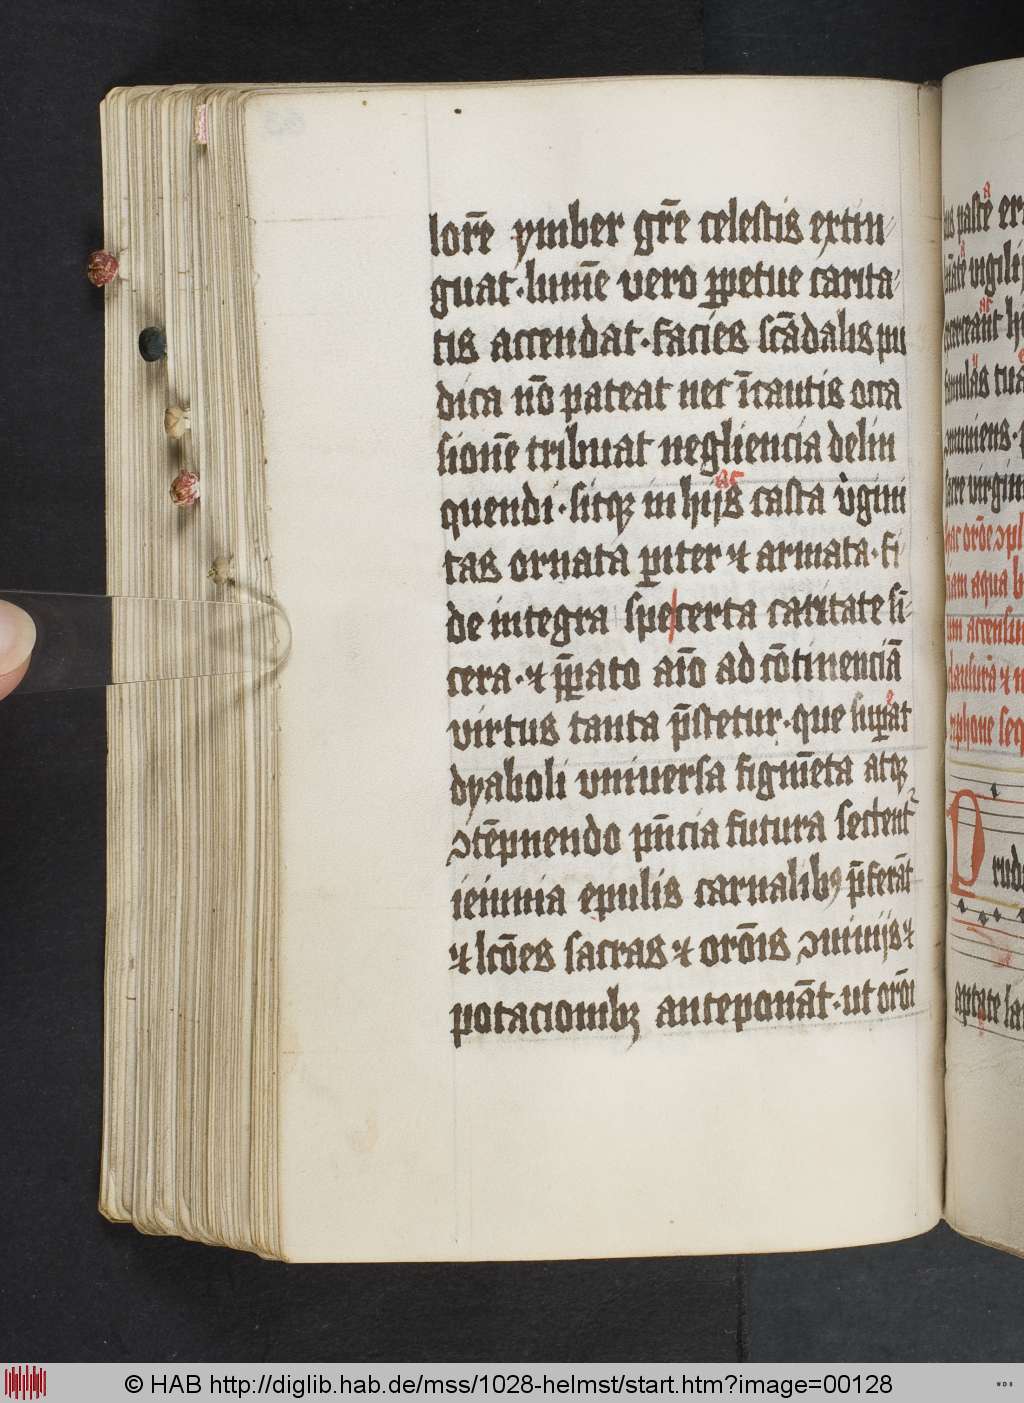 lorē ymber grē celestis extin
guat · lumīe vero ꝑpetue carita
tis accendat · facies scādalis pu
dica nō pateat nec īcautis occa
sionē tribuat negliencia delin
quendi · sitqꝫ in hijs casta v̓gini
tas ornata ꝑiter ⁊ armata · fi
de integra spe certa caritate sī
cera · ⁊ p̄ꝑato aīo ad cōtinenciā
virtus tanta p̄stetur · que suꝑat
dyaboli vniuersa figmēta atqꝫ
ↄtēpnendo pn̄cia futura sectent᷑
ieiunia epulis carnalibꝰ p̄ferāt
⁊ lcōes sacras ⁊ orōnis ↄuiuijs ⁊
potacionibꝫ anteponāt · ut orōni
us paste
vigili
famulas tua
muniens
sacre virgini
hac orōe ↄpl
aqua b
accensu
clausurā ⁊
seq
Prude
aptate la
© HAB http://diglib.hab.de/mss/1028-helmst/start.htm?image=00128